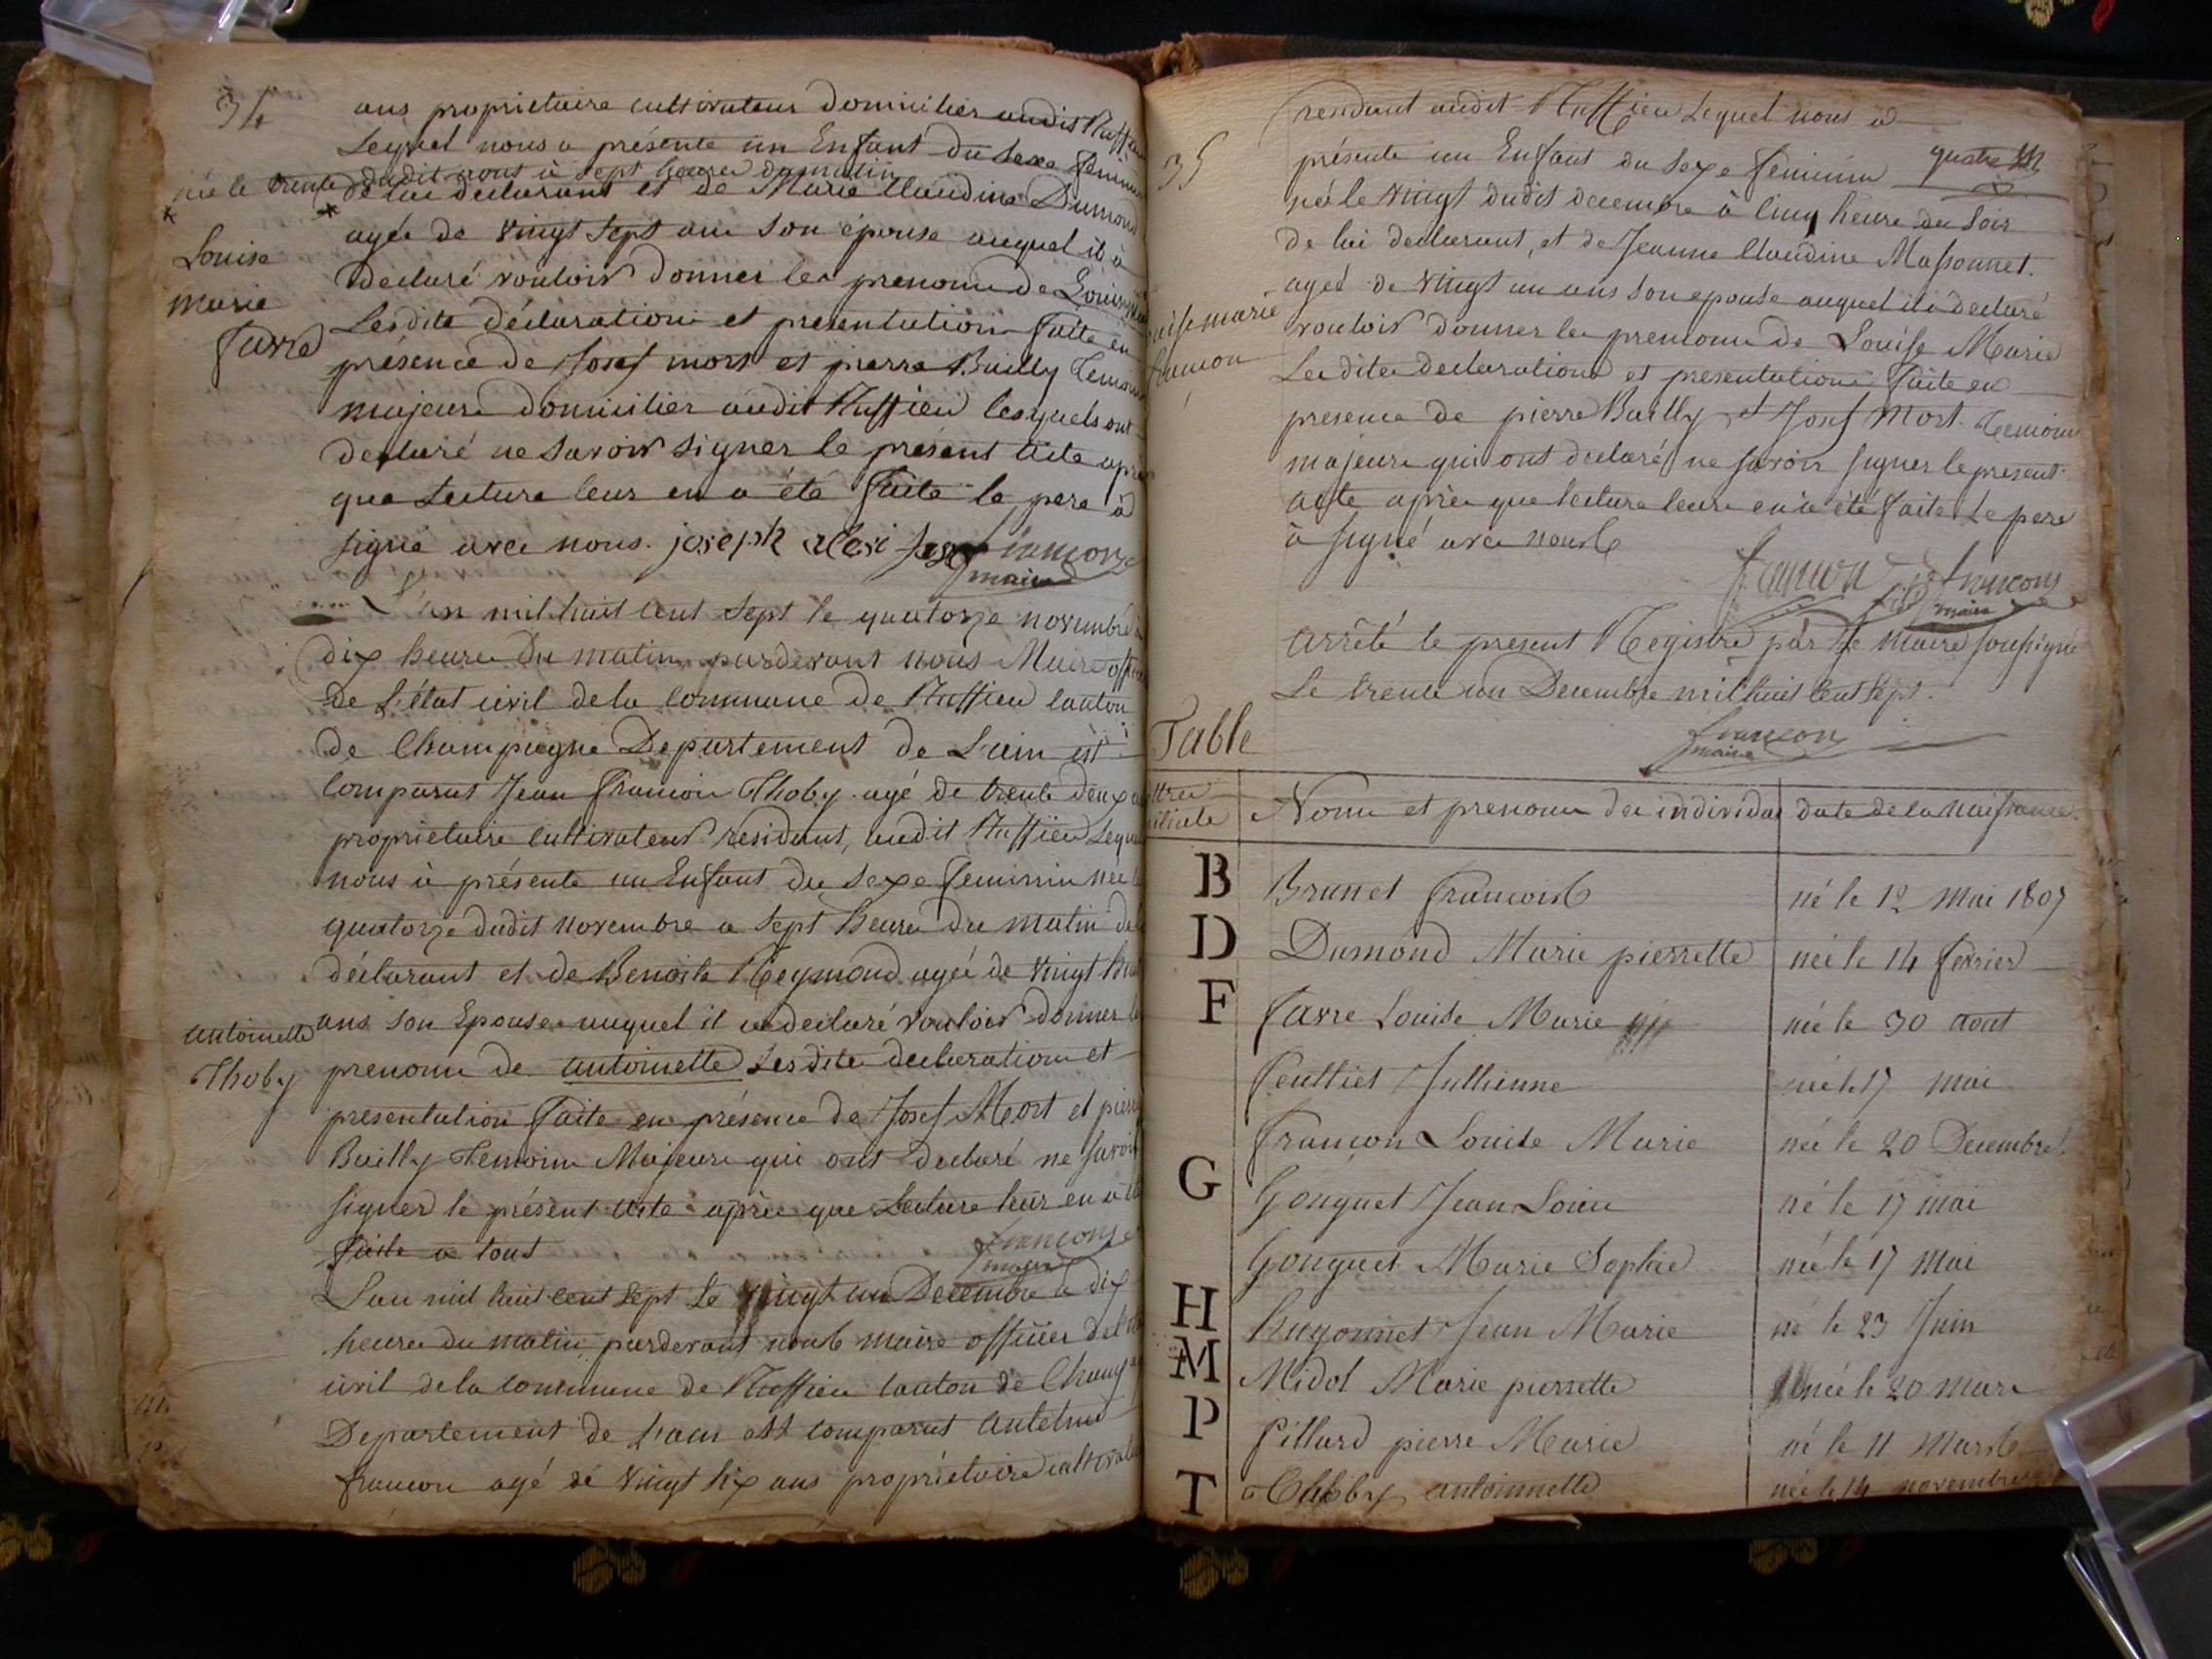 34
ans proprietaire cultivateur domicilier audit Ruffieu
Lequel nous a présente un Enfant du sexe feminin
née le trente dudit aout à sept heure du matin
* de lui declarant et de Marie Claudine Dumond
agée de vingt sept ans son épouse auquel il à
Louise
declaré vouloir donner les prenoms de Louise
Marie
Lesdite déclaration et presentation faite en
favre
présence de Josef mort et pierre Bailly temoins
majeure domicilier audit Ruffieu lesquels ont
declaré ne savoir signer le présent acte après
que Lecture leur en a été faite le pere à
signé avec nous. joseph alexi françon
maire
L'an mil huit cent sept le quatorze novembre à
dix heure du matin pardevant nous Maire officier
de l'état civil de la commune de Ruffieu canton
de Champagne Departement de L'ain est
comparut Jean françoi Thoby agé de trente deux
proprietaire cultivateur résidant, audit Ruffieu Lequel
nous à présente un Enfant du sexe feminin née le
quatorze dudit novembre a sept heure du matin de
déclarant et de Benoite Reymond agée de vingt huit
antoinette
ans son Epouse auquel il a declaré vouloir donner le
Thoby
prenom de antoinette Lesdite declaration et
presentation faite en présence de Josef Mort et pierre
Bailly temoin Majeure qui ont declaré ne savoir
signer le présent acte après que Lecture leur en à été
faite a tout
françon
maire
L'an mil huit cent sept le vingt un Decembre à dix
heure du matin pardevant nous maire officier de l'état
civil de la commune de Ruffieu canton de Champagne
Departement de L'ain est comparut antelme
françon agé de vingt six ans propriétaire cultivateur
résidant audit Ruffieu Lequel nous à
35
présente un Enfant du sexe feminin
quatre
né le vingt dudit decembre à cinq heure du soir
de lui declarant, et de Jeanne Claudine Massonnet.
ageé de vingt un ans son epouse auquel il a declaré
Louise marie
vouloir donner les prenom de Louise Marie
françon
Les dite declaration et presentation faite en
presence de pierre Bailly et Josef Mort. temoins
majeure qui ont declaré ne savoir signer le present
acte après que lecture leur en a été faite Le pere
à signé avec nous
françon françon
maire
arrêté le present Registre par le maire soussigné
Le trente un Decembre mil huit cent sept.
françon
maire
Table
Lettre initiale | Nom et prenom des individus | date de la naissance.
B Brunet francois né le 12 mai 1807
D Dumond Marie pierrette née le 14 fevrier
F favre Louise Marie née le 30 aout
feuillet Jullienne née le 17 mai
françon Louise Marie née le 20 Decembre
G Gonguet Jean Louis né le 17 mai
Gonguet Marie Sophie née le 17 Mai
H hugonnet Jean Marie né le 23 Juin
M Midol Marie pierrette née le 20 mars
P Pillard pierre Marie né le 11 Mars
T Thobby antoinnette née le 14 novembre